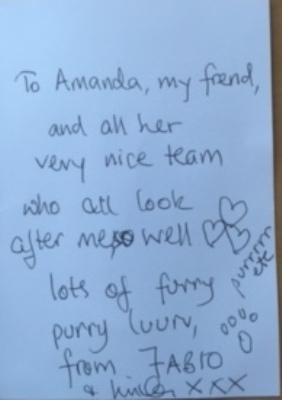 To Amanda, my friend,
and all her
very nice team
who all look
after me so well
purrrrr
etc
lots of furry
purry luurv,
from FABIO
& xxx